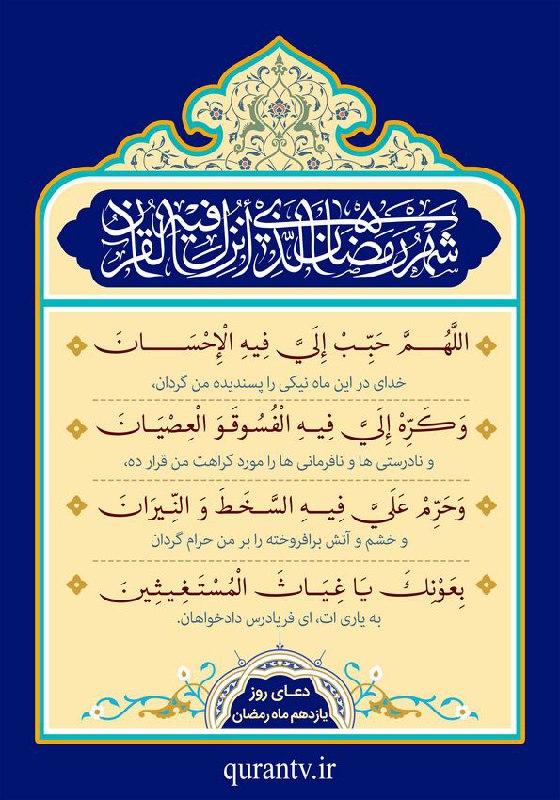 شَهْرُ رَمَضَانَ الَّذِي أُنْزِلَ فِيهِ الْقُرْآنُ
اللَّهُمَّ حَبِّبْ إِلَيَّ فِيهِ الْإِحْسَانَ
خدای در این ماه نیکی را پسندیده من گردان،
وَكَرِّهْ إِلَيَّ فِيهِ الْفُسُوقَوَ الْعِصْيَانَ
و نادرستی ها و نافرمانی ها را مورد کراهت من قرار ده،
وَحَرِّمْ عَلَيَّ فِيهِ السَّخَطَ وَ النِّيرَانَ
و خشم و آتش برافروخته را بر من حرام گردان
بِعَوْنِكَ يَا غِيَاثَ الْمُسْتَغِيثِينَ
به یاری ات، ای فریادرس دادخواهان.
دعای روز
یازدهم ماه رمضان
qurantv.ir